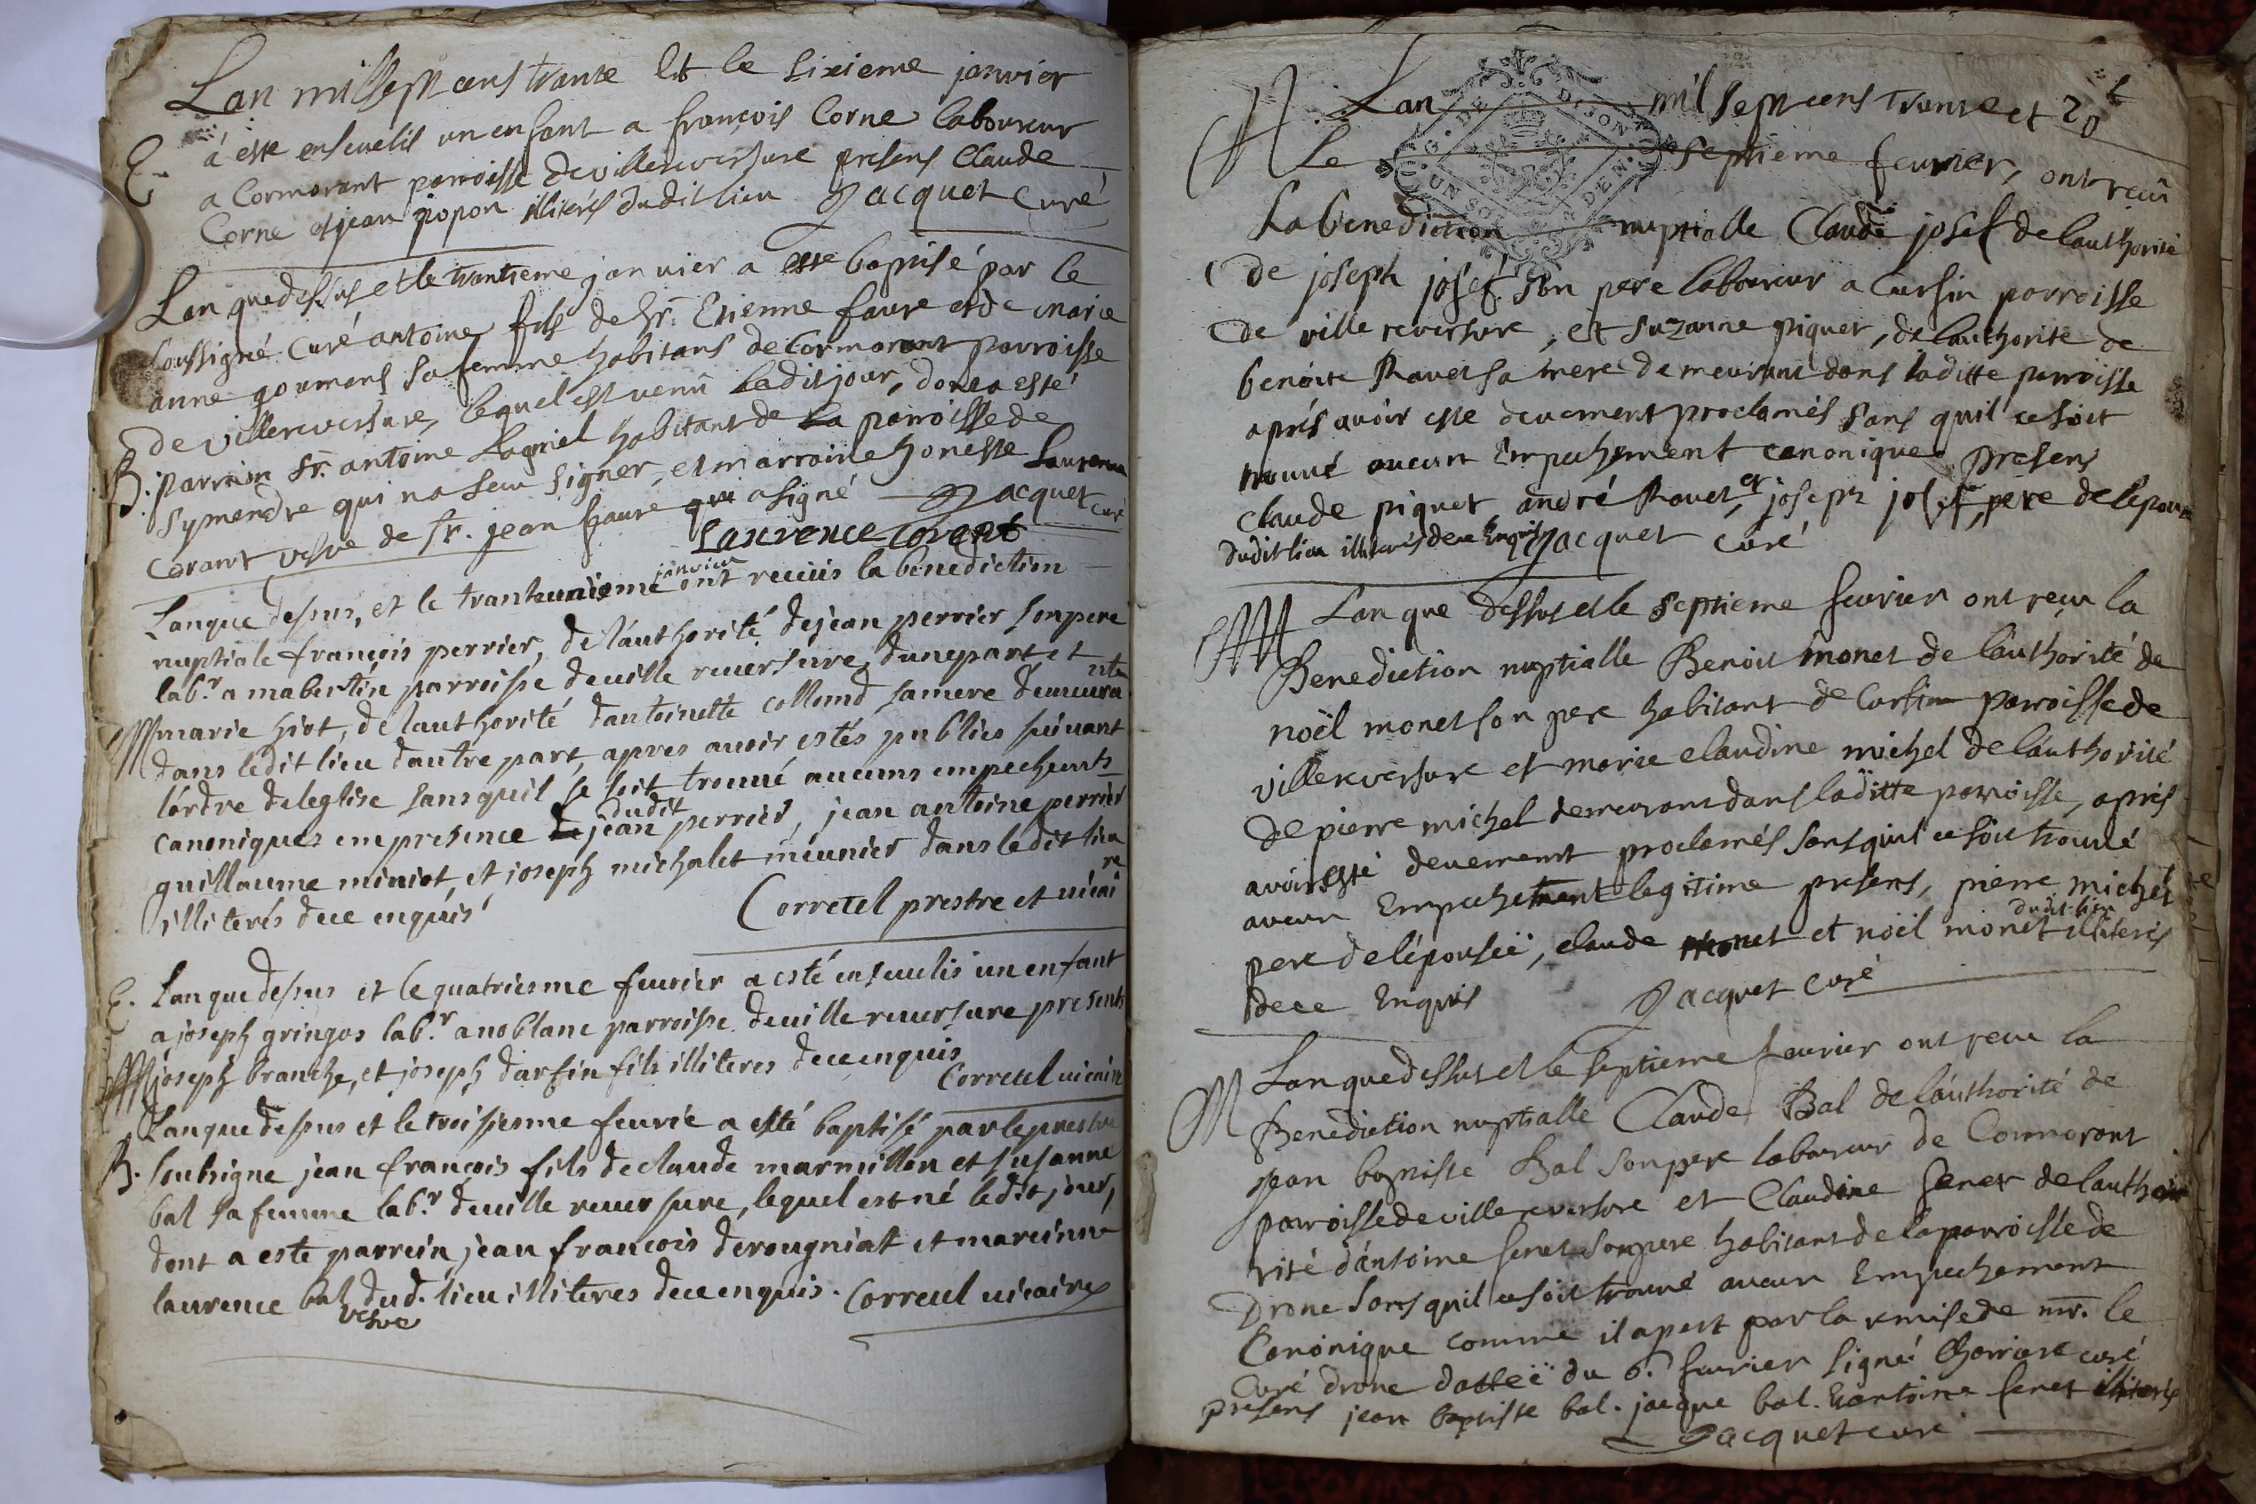 Lan mil sept cens trante Et le sixieme janvier
E. a esté ensevelis un enfant a françois Corne laboureur
a Cormorant parroisse de villereversure presens Claude
Corne et jean popon illiterés dudit lieu Jacquet Curé
Lan que dessus et le trantieme janvier a esté baptisé par le
soussigné Curé antoine fils de Sr. Etienne faure et de marie
anne goumens sa femme habitans de Cormorant parroisse
de villereversure, lequel est venû ledit jour, dont a esté
B. parrain Sr. antoine Lagniel habitant de La parroisse de
Symandre qui na seu signer, et marraine honeste Laurence
Corant vesve de Sr. jean faure qui a signé Jacquet curé
Laurence Corant
Lan que dessus, et le tranteunieme janvier ont receus la benediction
nuptiale françois perrier, de l'authorité de jean perrier son pere
lab.r a mabertin parroisse de ville reversure, dune part et
M marie hiot, de lauthorité dantoinette collond sa mere demeurante
dans ledit lieu dautre part, apres avoir estés publiés suivant
lordre de leglise sans quil se soit trouvé aucuns empechemts
canoniques em presence dudit jean perrier, jean antoine perrier
guillaume miniot, et joseph michalet meunier dans ledit lieu
illiterés de ce enquis Corretel prestre et vicaire
E. Lan que dessus et le quatriesme fevrier a esté ensevelis un enfant
a joseph gringos lab.r a noblanc parroisse de ville reversure presents
joseph branche, et joseph darfin fils illiteres de ce enquis
Corretel vicaire
Lan que dessus et le troisiesme fevrié a esté baptisé par le prestre
B. soubsigne jean françois fils de claude marmillon et susanne
bal sa femme lab.r de ville reversure, lequel est né ledit jour,
dont a esté parrein jean françois derougniat et mareinne
laurence bal vesve dud. lieu illiteres de ce enquis. Corretel vicaire
M. Lan mil sept cens trante et
Le septieme fevrier, ont reçû
La benediction nuptialle Claude josef de lauthorité
de joseph josef son pere laboureur a Cursin parroisse
de ville reversure, et suzanne piquet, de lauthorité de
benoite Ravet sa mere demeurant dans laditte parroisse
aprés avoir esté deuement proclamés sans quil ce soit
trouvé aucun Empechement canonique presens
Claude piquet, andré Ravet, et joseph josef, pere de lepoux
dudit lieu illiterés de ce Enquis Jacquet Curé
M Lan que dessus et le septieme fevrier ont reçu la
Benediction nuptialle Benoit monet de lauthorité de
noël monet son pere habitant de Cursin parroisse de
villereversure et marie claudine michel de lauthorité
de pierre michel demeurant dans laditte parroisse, aprés
avoir esté deuement proclamés sans quil ce soit trouvé
aucun Empechement legitime presens, pierre michel
pere de lépouseé, claude monet et noël monet dudit lieu illiterés
de ce Enquis Jacquet curé
M Lan que dessus et le septieme fevrier ont reçu la
Benediction nuptialle Claude Bal de lauthorité de
jean baptiste Bal son pere laboureur de Cormorant
parroisse de villereversure et Claudine feret de lautho
rité dantoine feret son pere habitant de la parroisse de
Drone sans quil ce soit trouvé aucun Empechement
Canonique comme il apert par la remise de mr. le
Curé drone datteé du 6. fevrier signé Charriere curé
presens jean baptiste bal. jacque bal. Et antoine feret illiterés
Jacquet curé